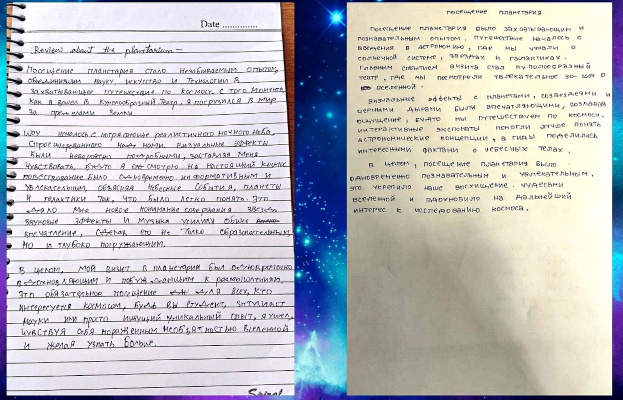 Date ..............
Review about the planetarium -
Посещение планетария стало незабываемым опытом,
объединившим науку, искусство и технологии в
захватывающее путешествие по космосу. с того момента,
как я вошел в куполообразный театр, я погрузился в мир
за пределами земли.
шоу началось с потрясающе реалистичного ночного неба,
спроецированного над нами. визуальные эффекты
были невероятно подробными, заставляя меня
чувствовать, будто я смотрю на настоящий космос.
повествование было одновременно информативным и
увлекательным, объясняя небесные события, планеты
и галактики так, что было легко понять. это
дало мне новое понимание созерцания звезд.
звуковые эффекты и музыка усилили общее
впечатление, сделав его не только образовательным,
но и глубоко погружающим.
в целом, мой визит в планетарий был одновременно
вдохновляющим и побуждающим к размышлениям.
это обязательное посещение для всех, кто
интересуется космосом, будь вы студент, энтузиаст
науки или просто ищущий уникальный опыт, я ушел,
чувствуя себя пораженным необъятностью вселенной
и желая узнать больше.
посещение планетария
посещение планетария было захватывающим и
познавательным опытом. путешествие началось с
введения в астрономию, где мы узнали о
солнечной системе, звездах и галактиках.
главным событием визита стал куполообразный
театр, где мы посмотрели увлекательное 3D-шоу о
вселенной.
визуальные эффекты с планетами, созвездиями и
черными дырами были впечатляющими, создавая
ощущение, будто мы путешествуем по космосу.
интерактивные экспонаты помогли лучше понять
астрономические концепции, а гиды поделились
интересными фактами о небесных телах.
в целом, посещение планетария было
одновременно познавательным и увлекательным,
это укрепило наше восхищение чудесами
вселенной и вдохновило на дальнейший
интерес к исследованию космоса.